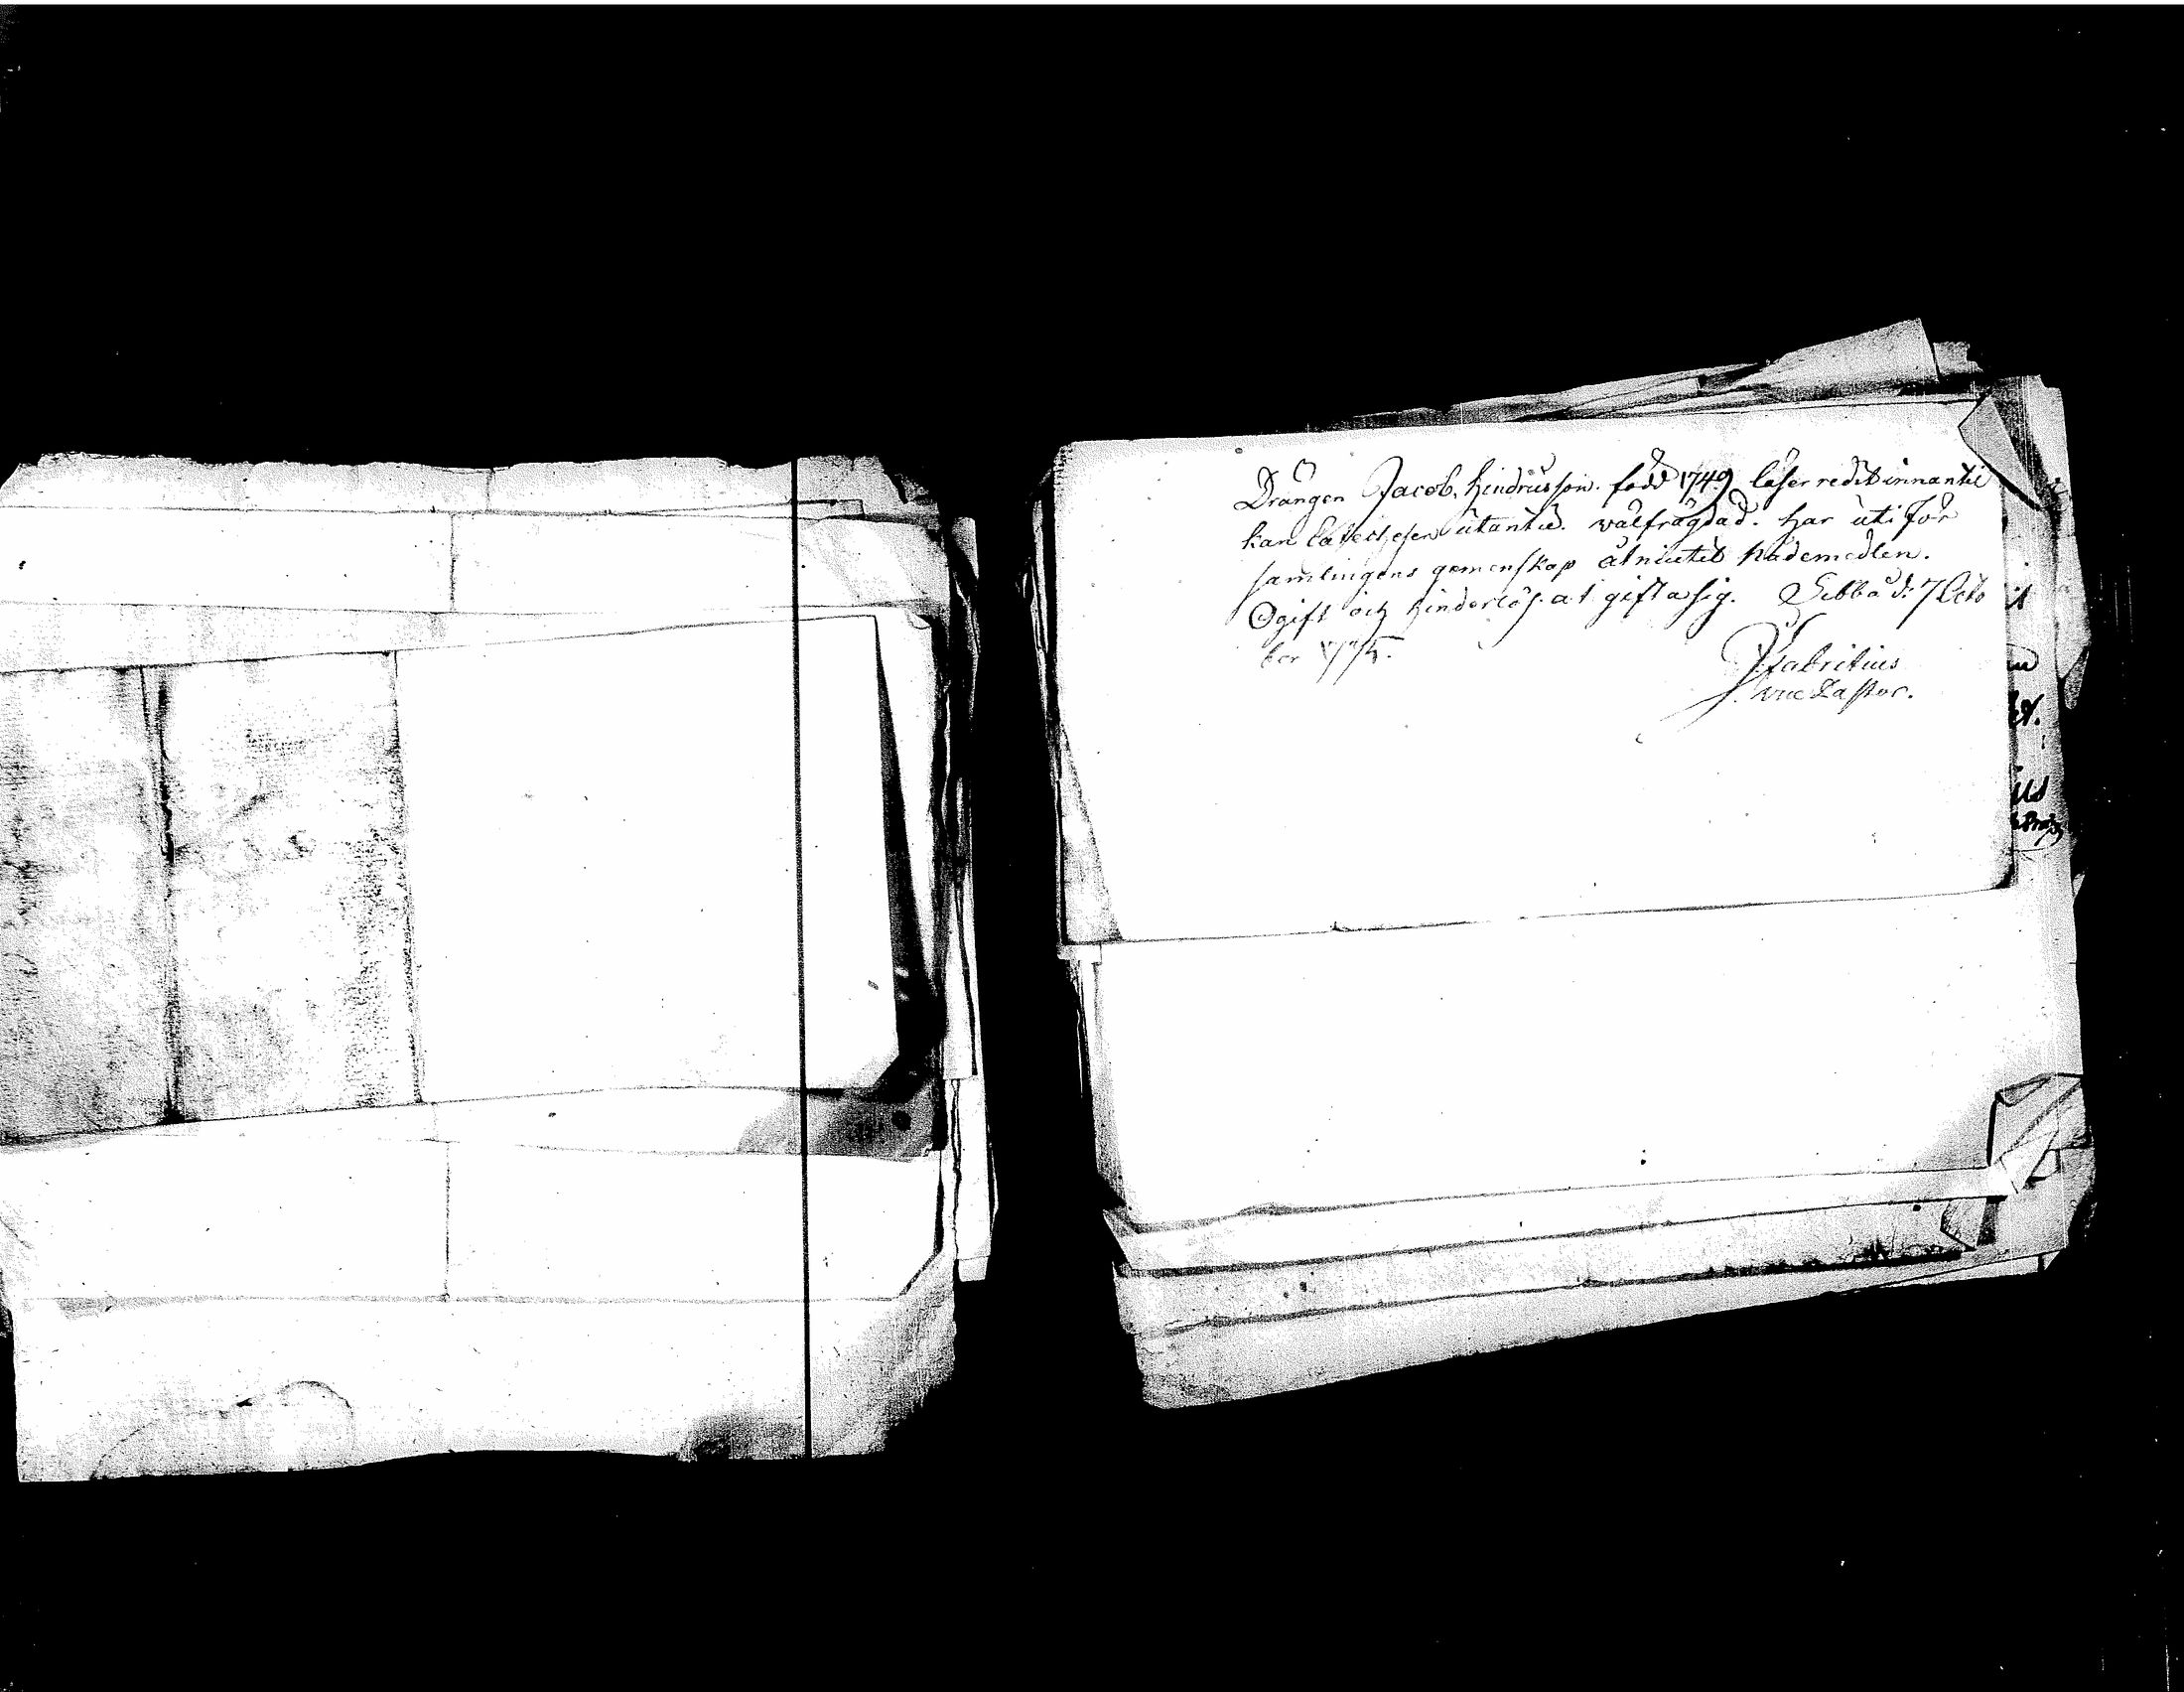 Drängen Jacob Hindrüsson. född 1749 läser redit innantil
kan Catechesen ütantil. wälfrägdad. har üti För
samlingens gemenskap åtniütit Nådemedlen.
Ogift och hinderlös at gifta sig. Sibbå d: 7 Octo
ber 1775.
Fabritius
vice Pastor.